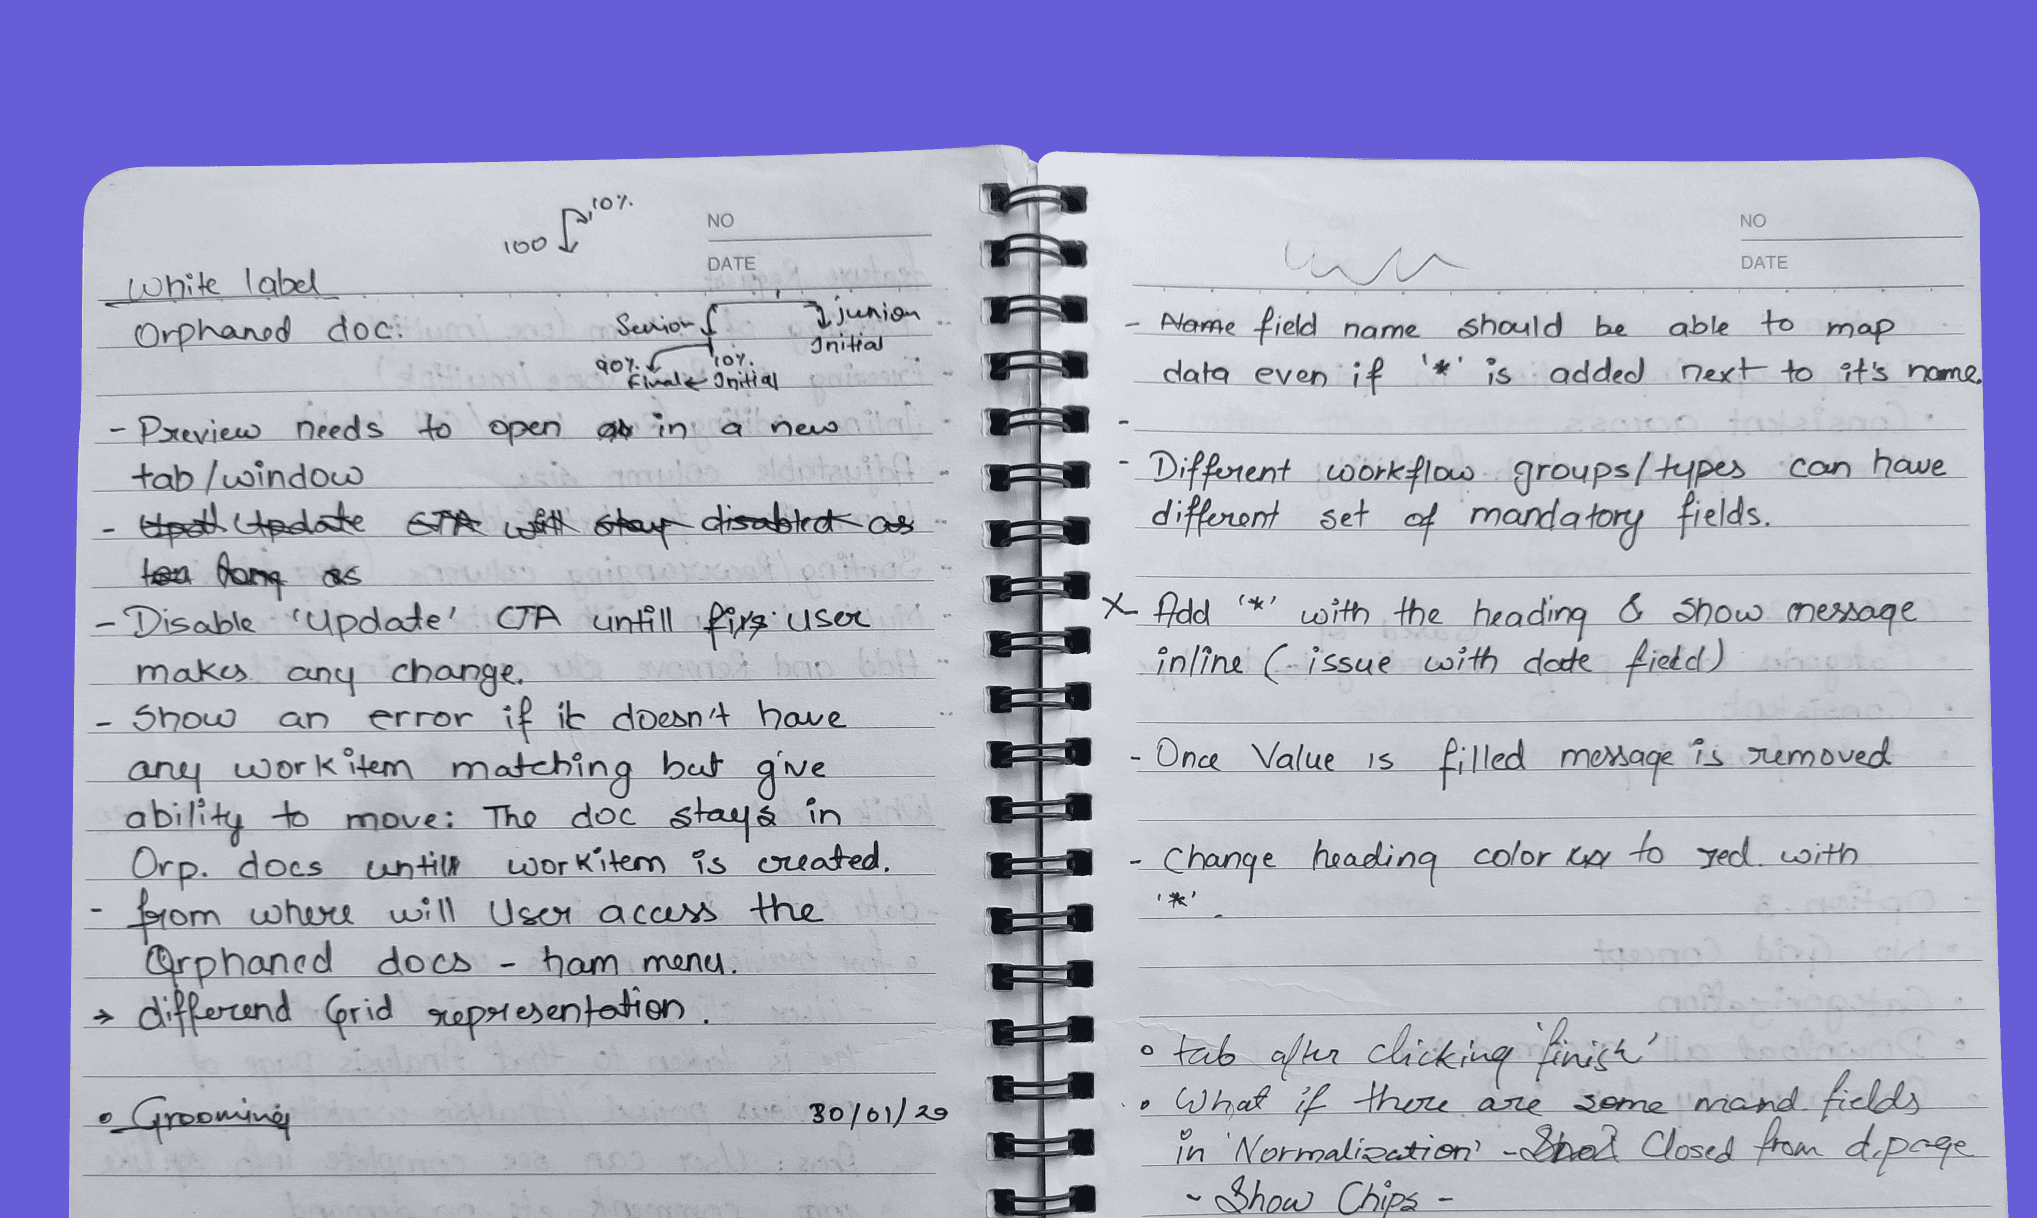 100 10%
NO
DATE
White label
Orphaned doc:
Senior junior
Initial
90% 10%
Final Initial
- Preview needs to open as in a new
tab/window
- Upd. Update CTA will stay disabled as
long as
- Disable 'Update' CTA untill firs user
makes any change.
- Show an error if it doesn't have
any workitem matching but give
ability to move: The doc stays in
Orp. docs untill workitem is created.
- from where will User access the
Orphaned docs - ham menu.
→ differend Grid representation.
• Grooming 30/01/20
NO
DATE
- Name field name should be able to map
data even if '*' is added next to it's name.
-
- Different workflow groups/types can have
different set of mandatory fields.
X- Add '*' with the heading & show message
inline (issue with date field)
- Once Value is filled message is removed
- Change heading color to red with
'*'.
• tab after clicking 'finish'
• What if there are some mand. fields
in 'Normalization' - Closed from d.page
- Show Chips -